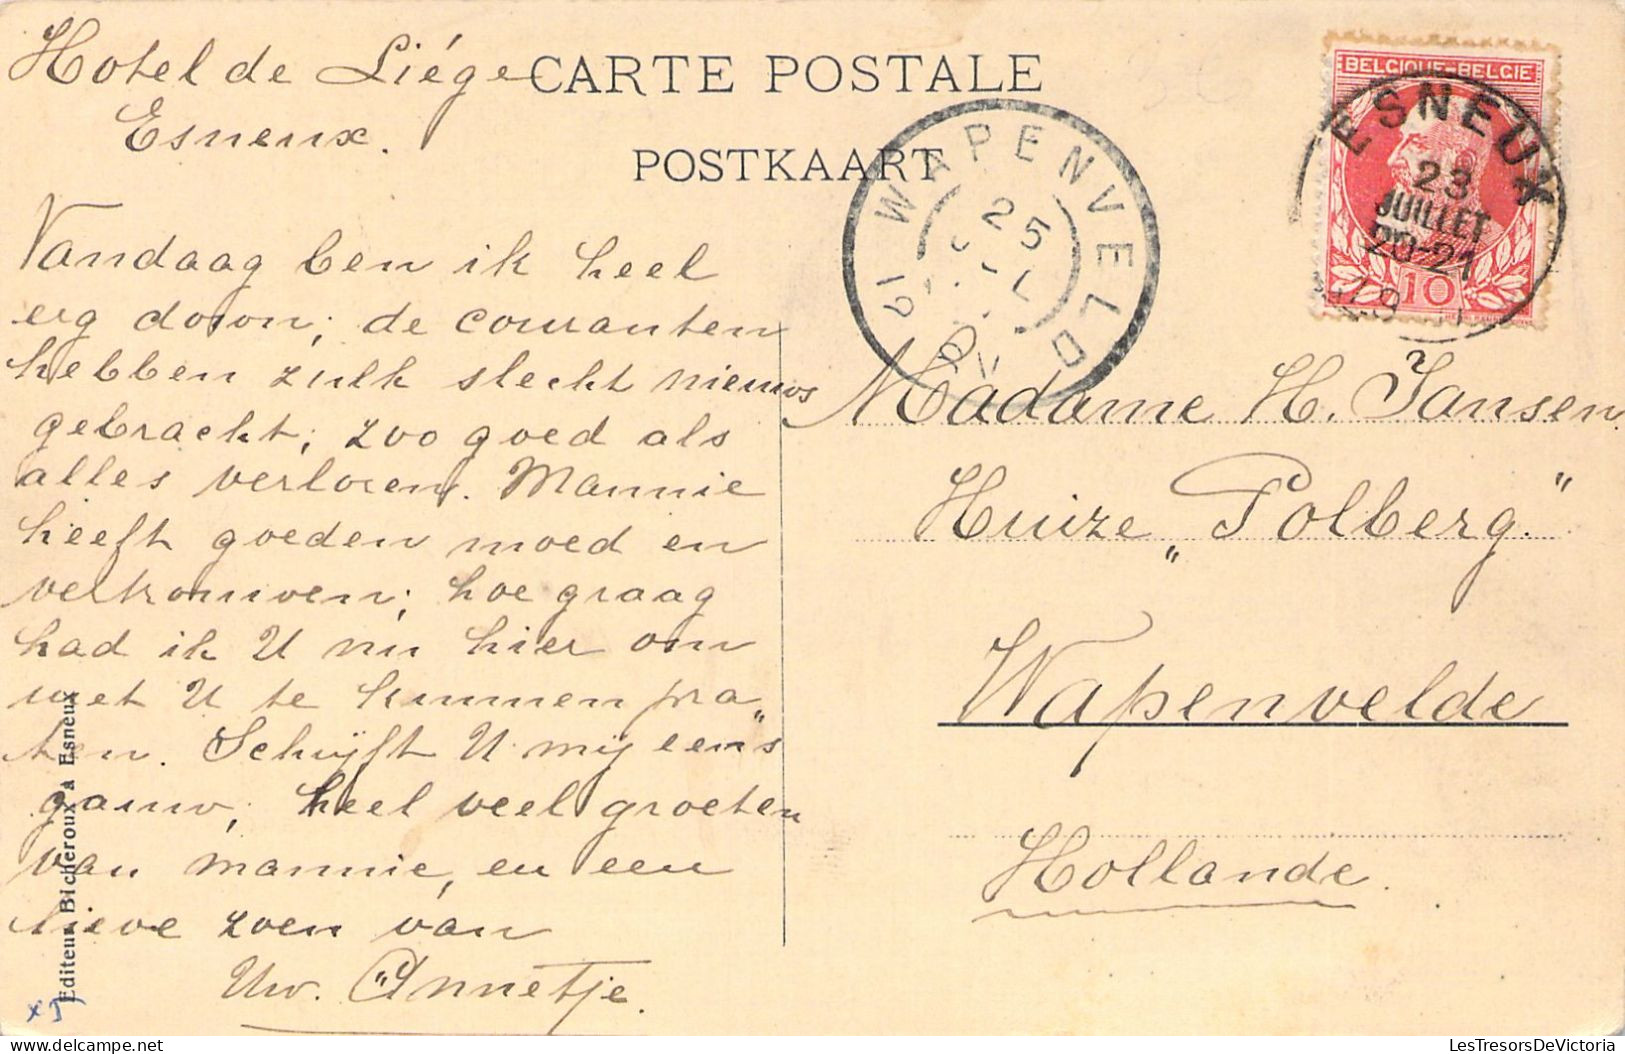 Hotel de Liége
Esneux.
CARTE POSTALE
POSTKAART
BELGIQUE-BELGIE
10
ESNEUX
23
JUILLET
20-21
19
WAPENVELD
25
Vandaag ben ik heel
erg down; de couranten
hebben zulk slecht nieuws
gebracht; zoo goed als
alles verloren. Mannie
heeft goeden moed en
vertrouwen; hoe graag
had ik U nu hier om
met U te kunnen pra„
ten. Schrijft U mij eens
gauw; heel veel groeten
van mannie, en een
lieve zoen van
Uw. Annetje.
Madame H. Jansen
Huize „Polberg."
Wapenvelde
Hollande.
Editeur Bicheroux à Esneux
LesTresorsDeVictoria
delcampe.net